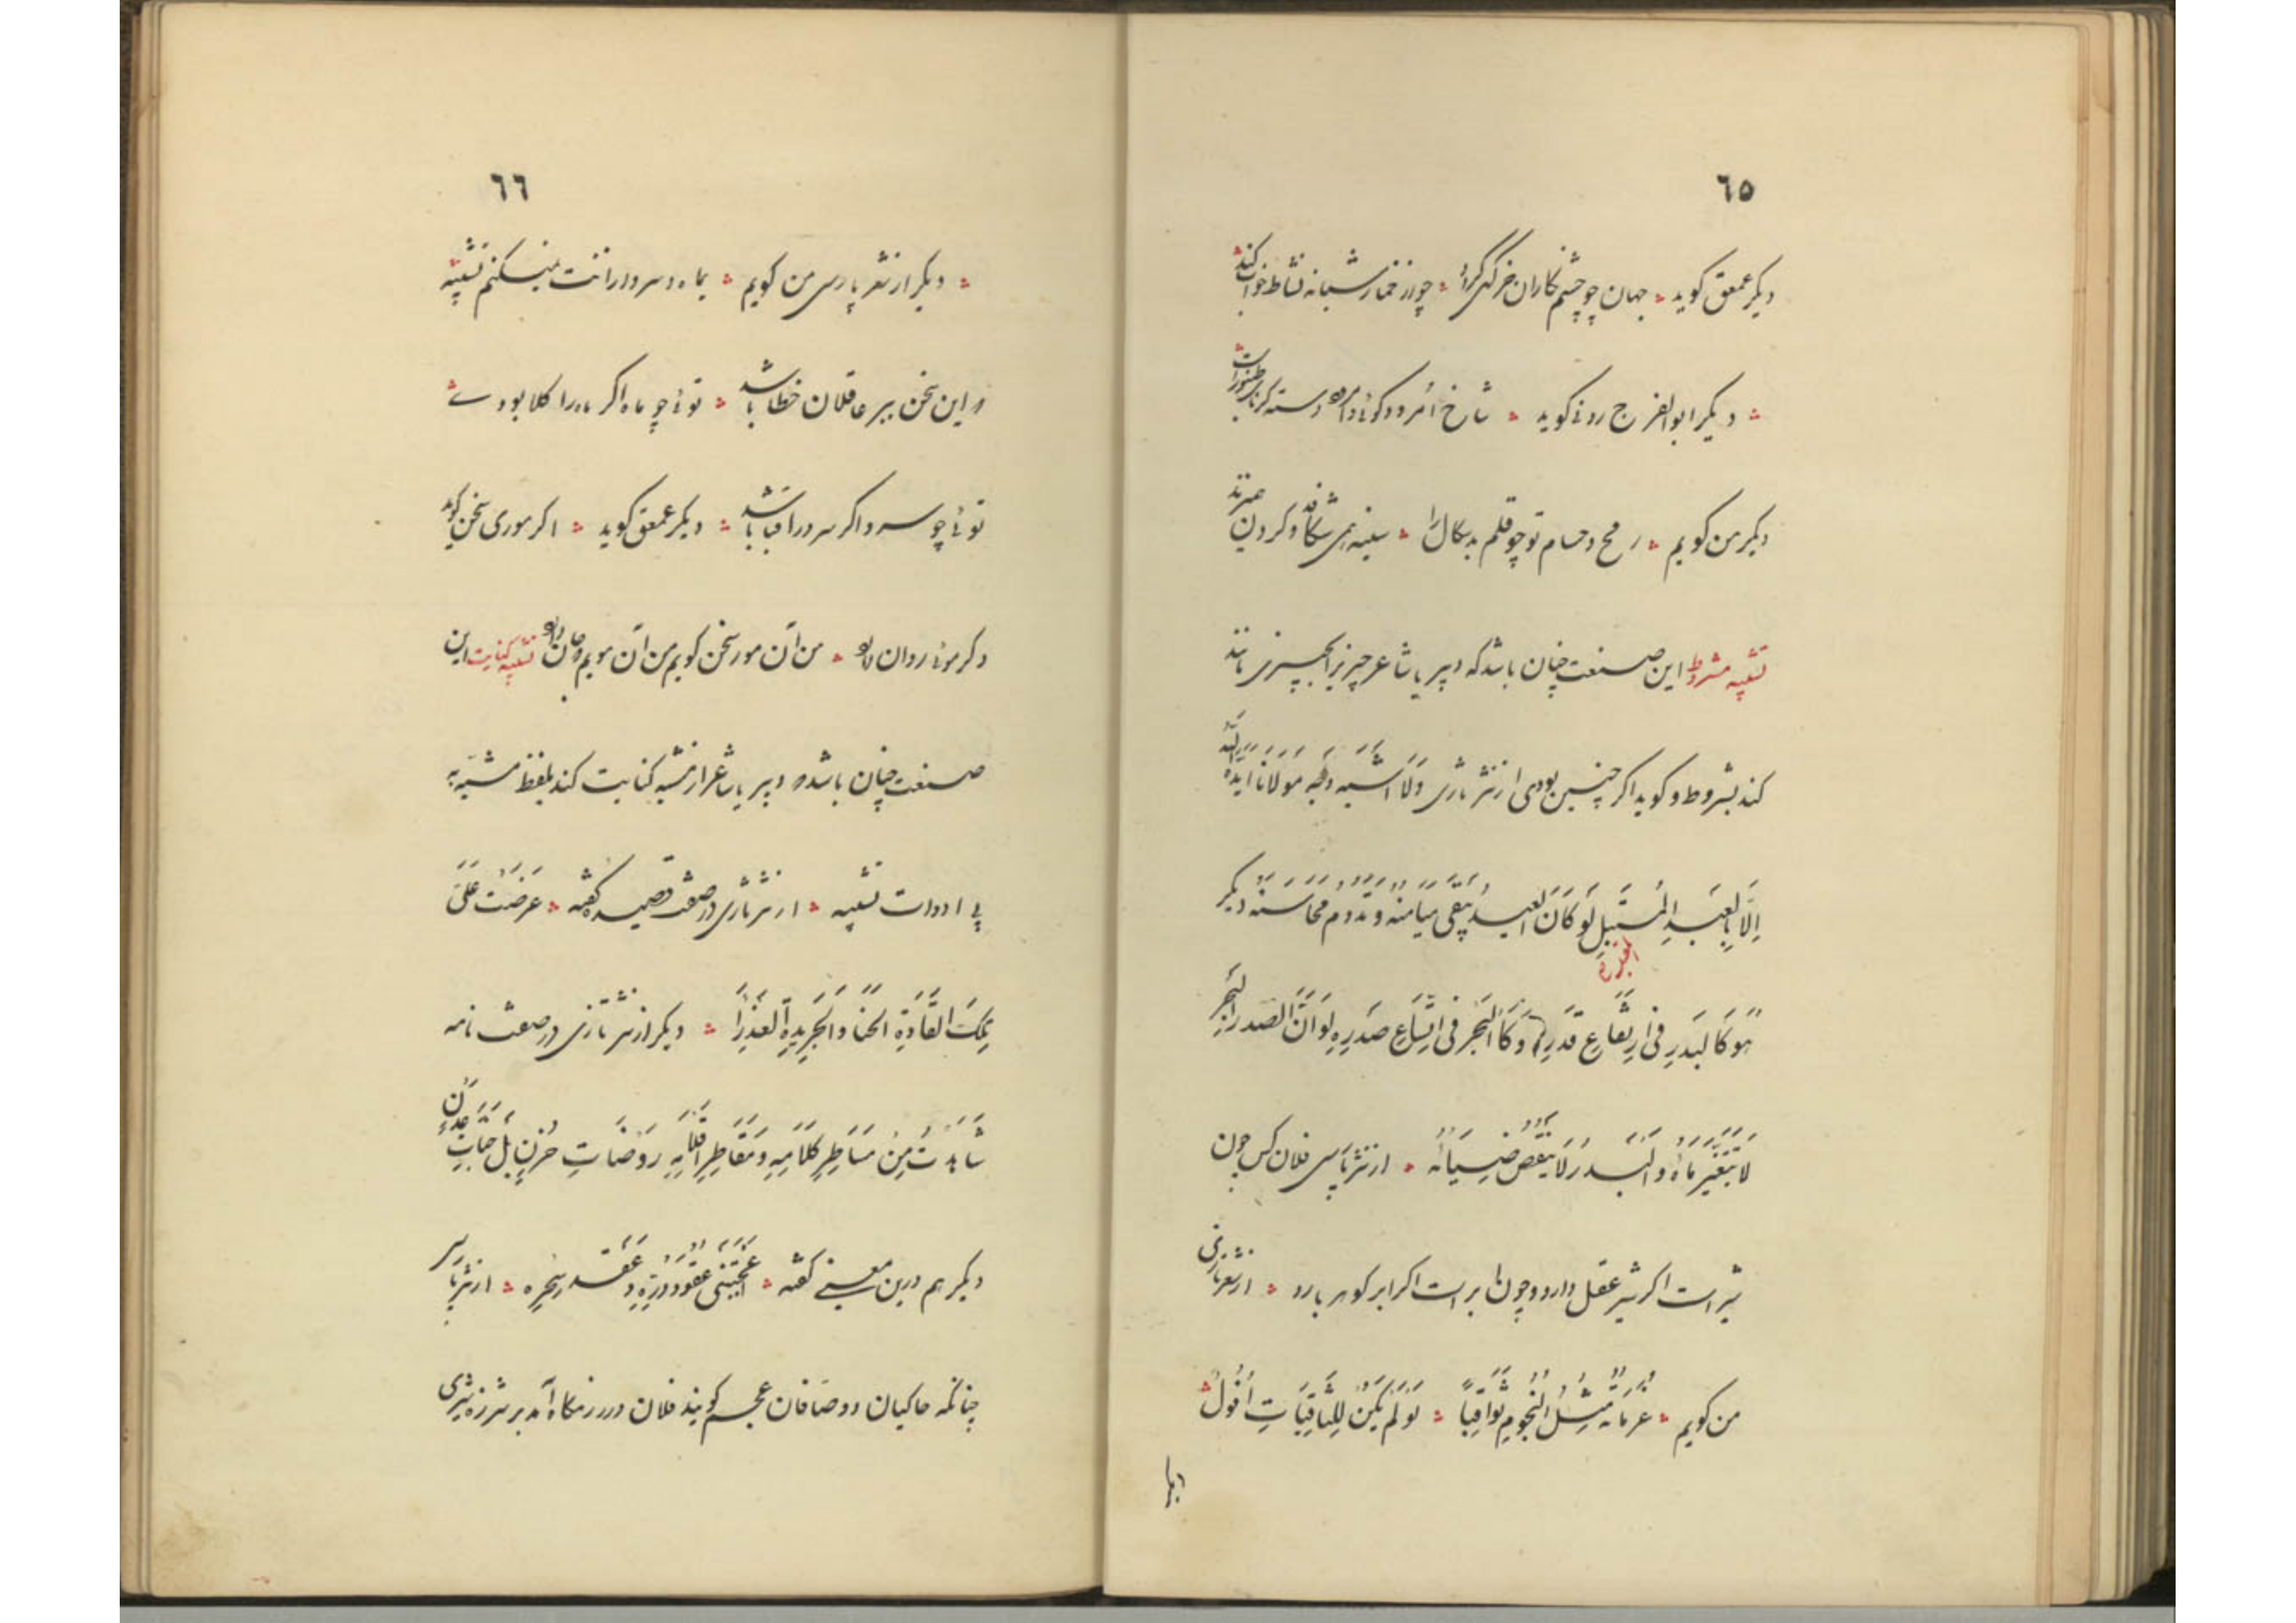 ٦٥
دیکر عمعق کوید جهان چو چشم نکاران خرکهی کردد چو از خمار شبانه نشاط خواب کند
دیکر ابوالفرج رونی کوید شاخ امرود کوئی و امرود دسته و کردنای طنبورست
دیکر من کویم رمح و حسام تو چو قلم بدسکال را سینه همی شکافد و کردن همی زند
تشبیه مشروط این صنعت چنان باشد که دبیر یا شاعر چیزی را بچیزی مانند
کند بشروط و کوید اکر چنین بودی از نثر تازی وَلَا اُشَبِّهُ وَجْهَ مَوْلَانَا اَیَّدَهُ اللهُ
اِلَّا بِالْعِیدِ الْمُسْتَقْبَلِ لَوْ کَانَ الْعِیدُ یَبْقَی مَیَامِنُهُ وَ تَدُومُ مَحَاسِنُهُ دیکر
هُوَ کَالْبَدْرِ فِی اِرْتِفَاعِ قَدْرِهِ وَ کَالْبَحْرِ فِی اِتِّسَاعِ صَدْرِهِ لَوْ اَنَّ الْبَحْرَ
لَا یَتَغَیَّرُ مَاؤُهُ وَ الْبَدْرُ لَا یَنْقُصُ ضِیَائُهُ از نثر پارسی فلان کس چون
شیر است اکر شیر عقل دارد و چون ابر است اکر ابر کوهر بارد از شعر تازی
من کویم عَزَمَاتُهُ مِثْلُ النُّجُومِ ثَوَاقِبًا لَوْ لَمْ یَکُنْ لِلثَّاقِبَاتِ اُفُولُ
٦٦
دیکر از شعر پارسی من کویم بماه و سرو از آنت نمیکنم تشبیه
که این سخن بر عاقلان خطا باشد توئی چو ماه اکر ماه را کلاه بود
توئی چو سرو اکر سرو را قبا باشد دیکر عمعق کوید اکر موری سخن کوید
و کر موئی روان دارد من آن مور سخن کویم من آن مویم که جان دارد تشبیه کنایت این
صنعت چنان باشد که دبیر یا شاعر از مشبه کنایت کند بلفظ مشبه به
بی ادوات تشبیه از نثر تازی در صفت قصیده کفته عَرَضْتُ عَلَی
تِلْکَ الْغَادَةِ الْحَسْنَا وَ الْخَرِیدَةِ الْعَذْرَا دیکر از نثر تازی در صفت نامه
شَاهَدْتُ مِنْ مَسَاطِرِ کَلَامِهِ وَ مَقَاطِرِ اَقْلَامِهِ رَوْضَاتِ حُزْنٍ بَلْ جَنَّاتِ عَدْنٍ
دیکر هم درین معنی کفته عُقُودُ دُرِّهِ وَ عُقَدُ سِحْرِهِ از نثر پارسی
چنانکه حاکیان و وصافان عجم کویند فلان در رزمکاه آمد بر شرزه شیری